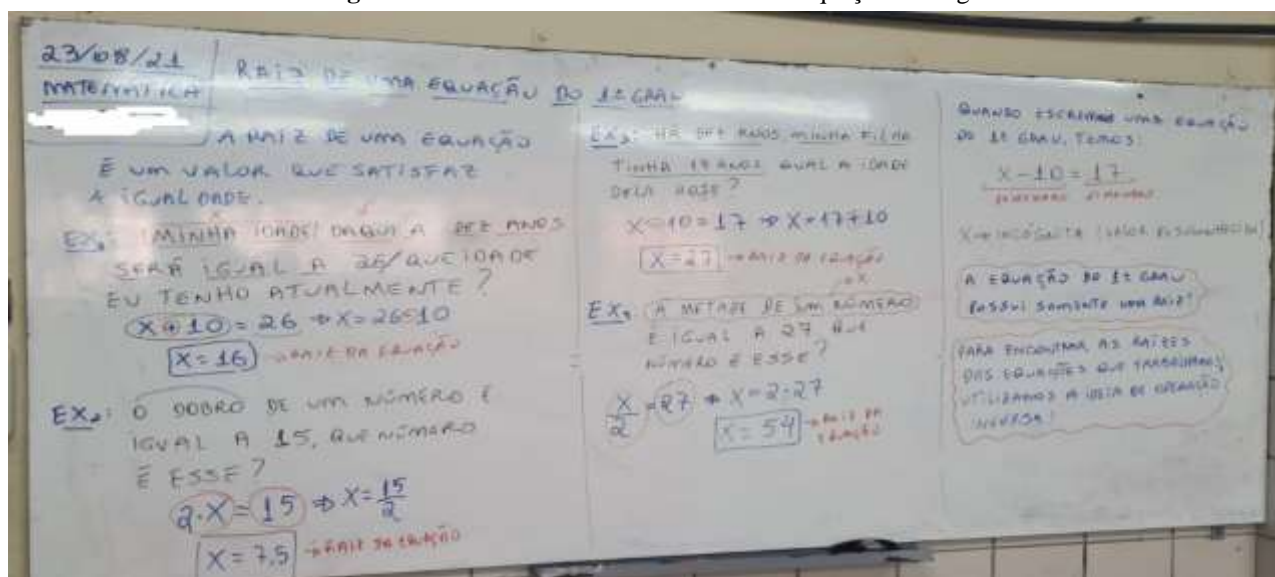 23/08/21
MATEMÁTICA
RAIZ DE UMA EQUAÇÃO DO 1º GRAU
A RAIZ DE UMA EQUAÇÃO
É UM VALOR QUE SATISFAZ
A IGUALDADE.
EX1: MINHA IDADE DAQUI A DEZ ANOS
SERÁ IGUAL A 26/QUE IDADE
EU TENHO ATUALMENTE?
X+10=26 ⇒ X=26-10
X=16 → RAIZ DA EQUAÇÃO
EX2: O DOBRO DE UM NÚMERO É
IGUAL A 15, QUE NÚMERO
É ESSE?
2·X=15 ⇒ X=15/2
X=7,5 → RAIZ DA EQUAÇÃO
EX3: HÁ DEZ ANOS MINHA FILHA
TINHA 17 ANOS QUAL A IDADE
DELA HOJE?
X-10=17 ⇒ X=17+10
X=27 → RAIZ DA EQUAÇÃO
X
EX4 A METADE DE UM NÚMERO
É IGUAL A 27, QUE
NÚMERO É ESSE?
X/2=27 ⇒ X=2·27
X=54 → RAIZ DA
EQUAÇÃO
QUANDO ESCREVEMOS UMA EQUAÇÃO
DO 1º GRAU, TEMOS:
X-10=17
X→ INCÓGNITA (VALOR DESCONHECIDO)
A EQUAÇÃO DO 1º GRAU
POSSUI SOMENTE UMA RAIZ!
PARA ENCONTRAR AS RAÍZES
DAS EQUAÇÕES QUE TRABALHAMOS
UTILIZAMOS A IDEIA DE OPERAÇÃO
INVERSA!